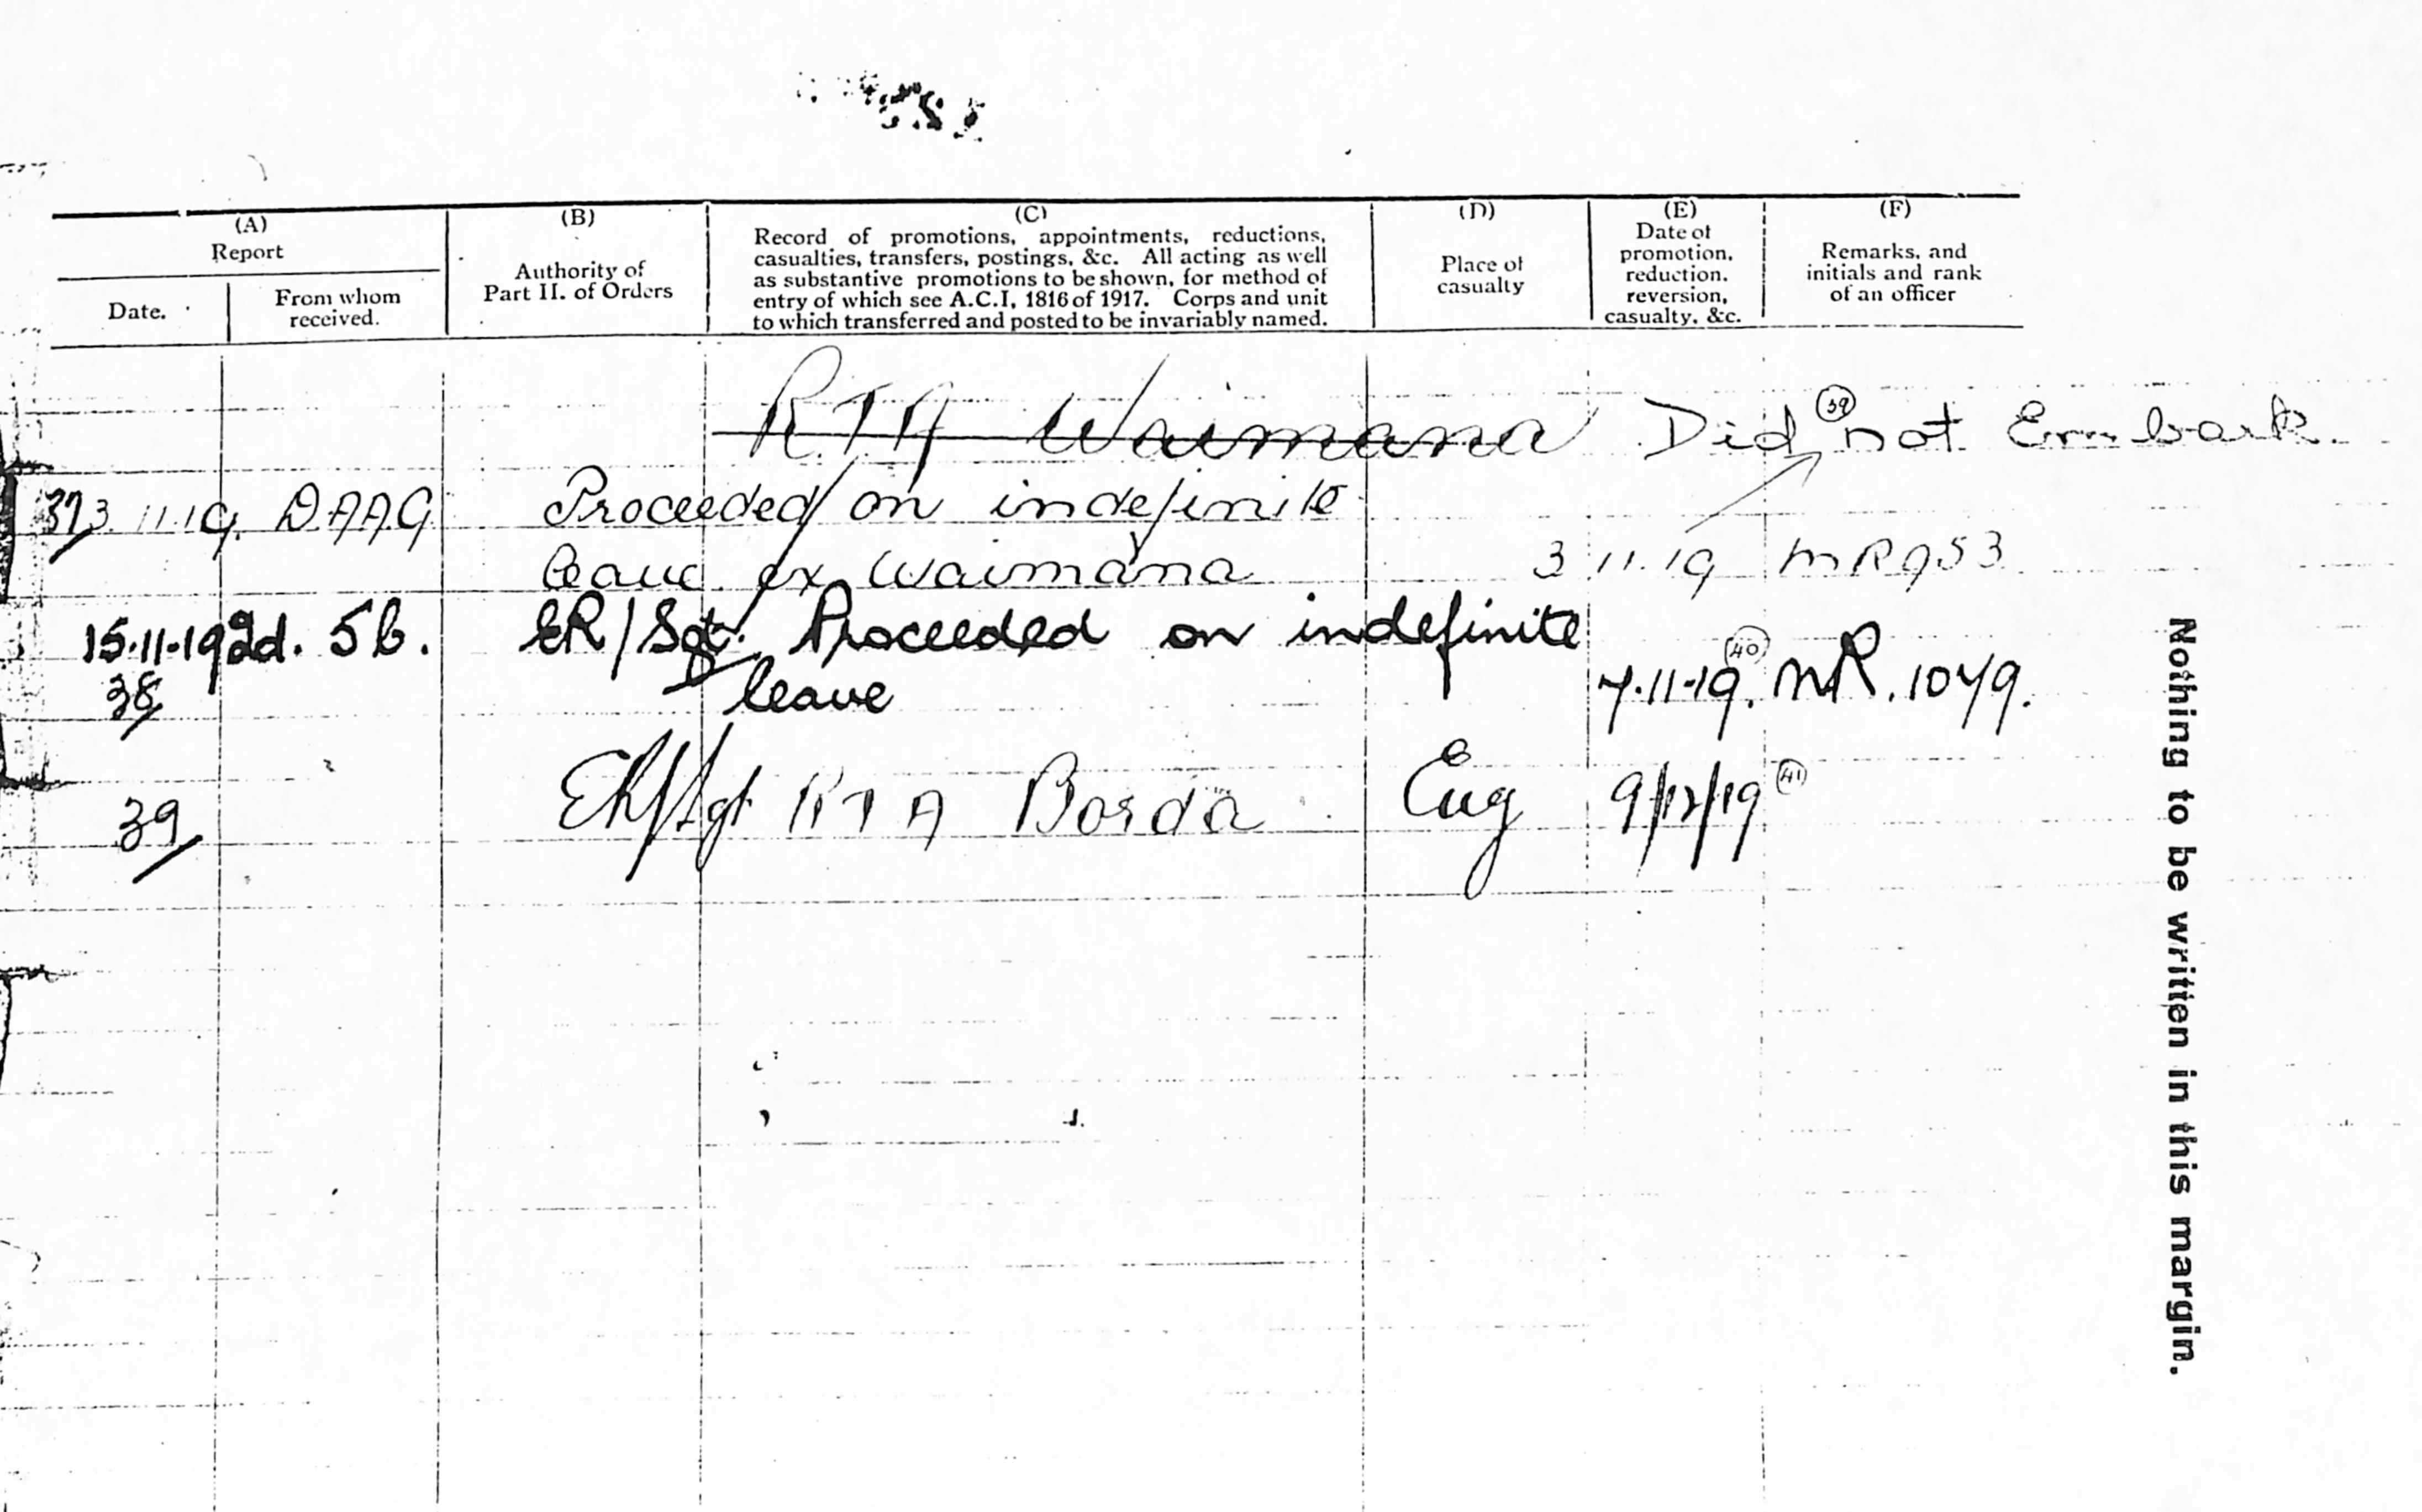 (A) (B) (C) (D) (E) (F)
Report
Date.
From whom
received.
Authority of
Part II. of Orders
Record of promotions, appointments, reductions,
casualties, transfers, postings, &c. All acting as well
as substantive promotions to be shown, for method of
entry of which see A.C.I, 1816 of 1917. Corps and unit
to which transferred and posted to be invariably named.
Place of
casualty
Date of
promotion,
reduction.
reversion,
casualty, &c.
Remarks, and
initials and rank
of an officer
R.T.A Waimana Did not Embark.
39
37 3.11.19. D.A.A.G Proceeded on indefinite
leave ex Waimana 3 11.19 MR953
15.11.19 2d. 5b. ER/Sgt. Proceeded on indefinite
38 leave 7.11.19. MR. 1079.
40
39 ER/Sgt R T A Borda Eng 9/12/19
41
Nothing to be written in this margin.